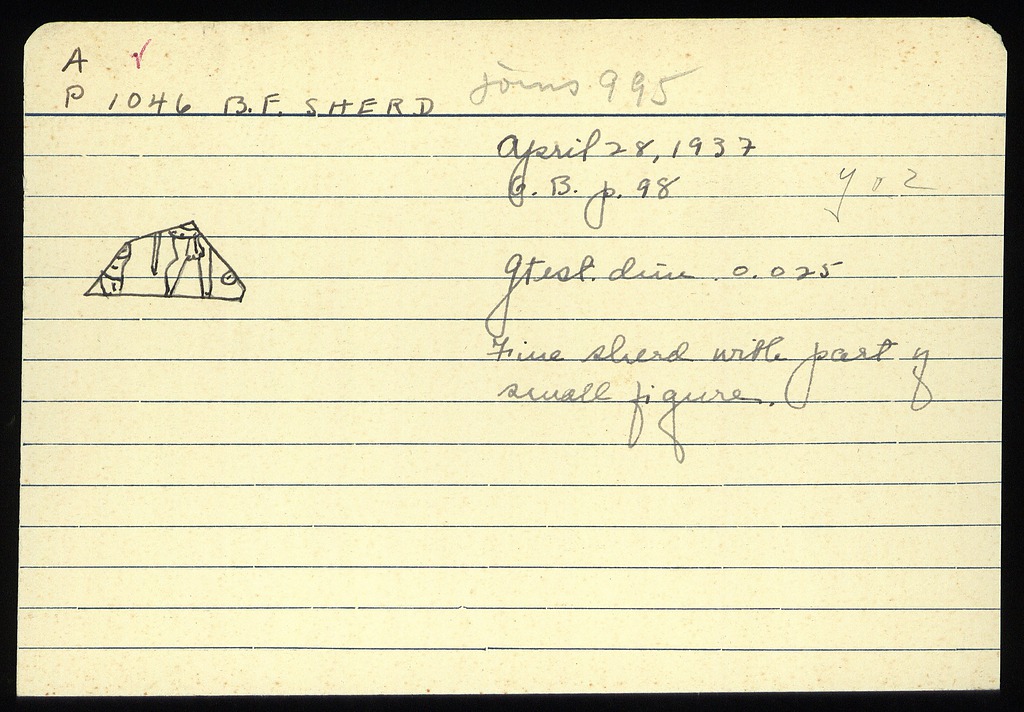 A
P 1046 B.F. SHERD joins 995
April 28, 1937
G. B. p. 98
gtest. dim. 0.025
Fine sherd with part of
small figure.